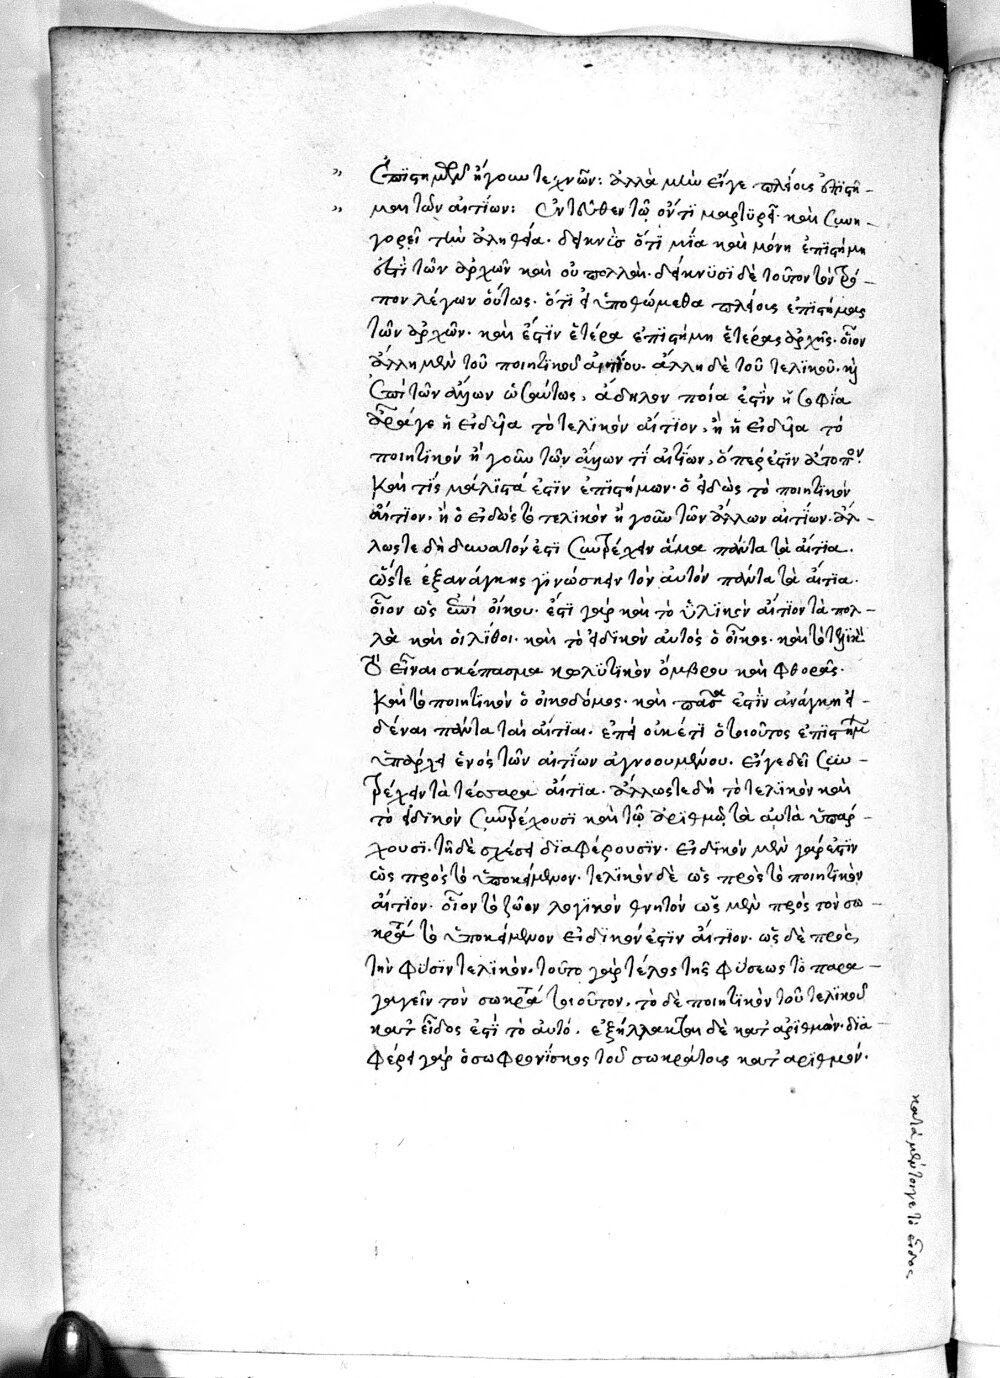 ἐπιστημῶν ἤγουν τεχνῶν: ἀλλὰ μὴν εἴγε πλείους ἐπιστῆ-
μαι τῶν αἰτίων: ἐντεῦθεν τῷ ὄντι μαρτυρεῖ καὶ συνη-
γορεῖ τὴν ἀλήθεια. δεικνὺς ὅτι μία καὶ μόνη ἐπιστήμη
ἐστὶ τῶν ἀρχῶν καὶ οὐ πολλαί. δείκνυσι δὲ τοῦτον τὸν τρό-
πον λέγων οὕτως. ὅτι εἰ ὑποθώμεθα πλείους ἐπιστήμας
τῶν ἀρχῶν. καὶ ἔστιν ἑτέρα ἐπιστήμη ἑτέρας ἀρχῆς. οἷον
ἄλλη μὲν τοῦ ποιητικοῦ αἰτίου. ἄλλη δὲ τοῦ τελικοῦ. καὶ
ἐπὶ τῶν ἄλλων ὡσαύτως, ἄδηλον ποία ἐστὶν ἡ σοφία
ἆρά γε ἡ εἰδυῖα τὸ τελικὸν αἴτιον, ἢ ἡ εἰδυῖα τὸ
ποιητικὸν ἤγουν τῶν ἄλλων τι αἰτίων, ὅπερ ἐστὶν ἄτοπον.
καὶ τίς μάλιστά ἐστιν ἐπιστήμων. ὁ εἰδὼς τὸ ποιητικὸν
αἴτιον, ἢ ὁ εἰδὼς τὸ τελικὸν ἤγουν τῶν ἄλλων αἰτίων. ἄλ-
λως τε δὴ δυνατόν ἐστι συντρέχειν ἅμα πάντα τὰ αἴτια.
ὥστε ἐξανάγκης γινώσκειν τὸν αὐτὸν πάντα τὰ αἴτια.
οἷον ὡς ἐπὶ οἴκου. ἔστι γὰρ καὶ τὸ ὑλικὸν αἴτιον τὰ πολ-
λὰ καὶ οἱ λίθοι. καὶ τὸ εἰδικὸν αὐτὸς ὁ οἶκος. καὶ τὸ τελικὸν
τὸ εἶναι σκέπασμα κωλυτικὸν ὄμβρου καὶ φθορᾶς.
καὶ τὸ ποιητικὸν ὁ οἰκοδόμος. καὶ πᾶσα ἐστὶν ἀνάγκη εἰ-
δέναι πάντα τὰ αἴτια. ἐπεὶ οὐκέτι ὁ τοιοῦτος ἐπιστήμων
ὑπάρχει ἑνὸς τῶν αἰτίων ἀγνοουμένου. εἴγε δεῖ συν-
τρέχειν τὰ τέσσαρα αἴτια. ἄλλως τε δὴ τὸ τελικὸν καὶ
τὸ εἰδικὸν συντρέχουσι καὶ τῷ ἀριθμῷ τὰ αὐτὰ ὑπάρ-
χουσι. τῇ δὲ σχέσει διαφέρουσιν. εἰδικὸν μὲν γάρ ἐστιν
ὡς πρὸς τὸ ὑποκείμενον. τελικὸν δὲ ὡς πρὸς τὸ ποιητικὸν
αἴτιον. οἷον τὸ ζῷον λογικὸν θνητὸν ὡς μὲν πρὸς τὸν σω-
κράτη τὸ ὑποκείμενον εἰδικόν ἐστιν αἴτιον. ὡς δὲ πρὸς
τὴν φύσιν τελικόν. τοῦτο γὰρ τέλος τῆς φύσεως τὸ παρα-
γαγεῖν τὸν σωκράτη τοιοῦτον, τὸ δὲ ποιητικὸν τοῦ τελικοῦ
κατ' εἶδος ἐστὶ τὸ αὐτό. ἐξήλλακται δὲ κατ' ἀριθμόν. δια-
φέρει γὰρ ὁ σωφρονίσκος τοῦ σωκράτους κατ' ἀριθμόν.
κατὰ μέντοιγε τὸ εἶδος